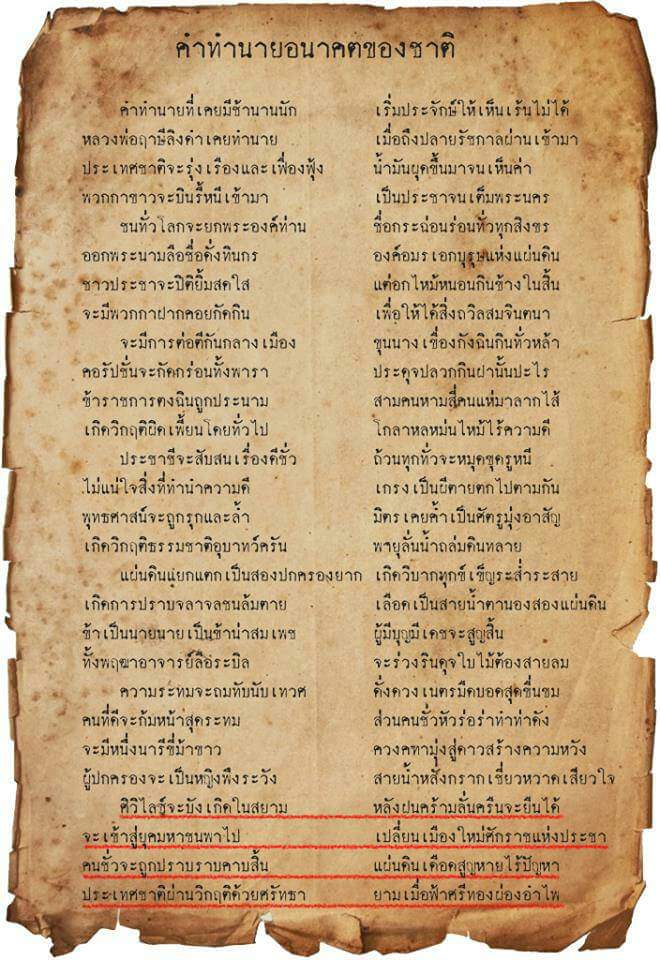 คำทำนายอนาคตของชาติ
คำทำนายที่เคยมีช้านานนัก เริ่มประจักษ์ให้เห็นเร้นไม่ได้
หลวงพ่อฤาษีลิงดำเคยทำนาย เมื่อถึงปลายรัชกาลผ่านเข้ามา
ประเทศชาติจะรุ่งเรืองและเฟื่องฟุ้ง น้ำมันผุดขึ้นมาจนเห็นค่า
พวกกาขาวจะบินรี้หนีเข้ามา เป็นประชาจนเต็มพระนคร
ชนทั่วโลกจะยกพระองค์ท่าน ชื่อกระฉ่อนร่อนทั่วทุกสิงขร
ออกพระนามลือชื่อดั่งทินกร องค์อมรเอกบุรุษแห่งแผ่นดิน
ชาวประชาจะปิติยิ้มสดใส แต่อกไหม้หนอนกินข้างในสิ้น
จะมีพวกกาฝากคอยกัดกิน เพื่อให้ได้สิ่งถวิลสมจินตนา
จะมีการต่อตีกันกลางเมือง ขุนนางเขื่องกังฉินกินทั่วหล้า
คอรัปชั่นจะกัดกร่อนทั้งพารา ประดุจปลวกกินฝานั้นปะไร
ข้าราชการตงฉินถูกประนาม สามคนหามสี่คนแห่มาลากไส้
เกิดวิกฤติผิดเพี้ยนโดยทั่วไป โกลาหลหม่นไหม้ไร้ความดี
ประชาชีจะสับสนเรื่องดีชั่ว ถ้วนทุกทั่วจะหมุดขุดรูหนี
ไม่แน่ใจสิ่งที่ทำนำความดี เกรงเป็นผีตายตกไปตามกัน
พุทธศาสน์จะถูกรุกและล้ำ มิตรเคยค้ำเป็นศัตรูมุ่งอาสัญ
เกิดวิกฤติธรรมชาติอุบาทว์ครัน พายุลั่นน้ำถล่มดินทลาย
แผ่นดินแยกแตกเป็นสองปกครองยาก เกิดวิบากทุกข์เข็ญระส่ำระสาย
เกิดการปราบจลาจลชนล้มตาย เลือดเป็นสายน้ำตานองสองแผ่นดิน
ข้าเป็นนายนายเป็นข้าน่าสมเพช ผู้มีบุญมีเดชจะสูญสิ้น
ทั้งพฤฒาอาจารย์ลือระบิล จะร่วงรินดุจใบไม้ต้องสายลม
ความระทมจะถมทับนับเทวศ ดั่งดวงเนตรมืดบอดสุดขื่นขม
คนที่ดีจะก้มหน้าสุดระทม ส่วนคนชั่วหัวร่อร่าทำท่าดัง
จะมีหนึ่งนารีขี่ม้าขาว ควงคทามุ่งสู่ดาวสร้างความหวัง
ผู้ปกครองจะเป็นหญิงพึงระวัง สายน้ำหลั่งกรากเชี่ยวหวาดเสียวใจ
ศิวิไลซ์จะบังเกิดในสยาม หลังฝนคร้ามลั่นครืนจะยืนได้
จะเข้าสู่ยุคมหาชนพาไป เปลี่ยนเมืองใหม่ศักราชแห่งประชา
คนชั่วจะถูกปราบราบคาบสิ้น แผ่นดินเดือดสูญหายไร้ปัญหา
ประเทศชาติผ่านวิกฤติด้วยศรัทธา ยามเมื่อฟ้าศรีทองผ่องอำไพ